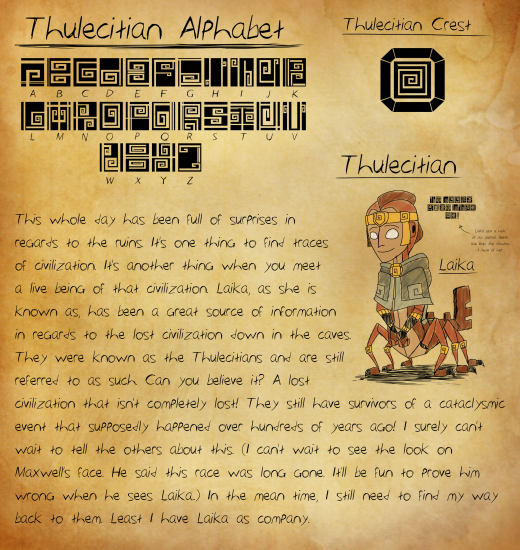 Thulecitian Alphabet
Thulecitian Crest
A B C D E F G H I J K
L M N O P Q R S T U V
W X Y Z
Thulecitian
Laika
This whole day has been full of surprises in
regards to the ruins. It's one thing to find traces
of civilization. It's another thing when you meet
a live being of that civilization. Laika, as she is
known as, has been a great source of information
in regards to the lost civilization down in the caves.
They were known as the Thulecitians and are still
referred to as such. Can you believe it? A lost
civilization that isn't completely lost! They still have survivors of a cataclysmic
event that supposedly happened over hundreds of years ago! I surely can't
wait to tell the others about this. (I can't wait to see the look on
Maxwell's face. He said this race was long gone. It'll be fun to prove him
wrong when he sees Laika.) In the mean time, I still need to find my way
back to them. Least I have Laika as company.